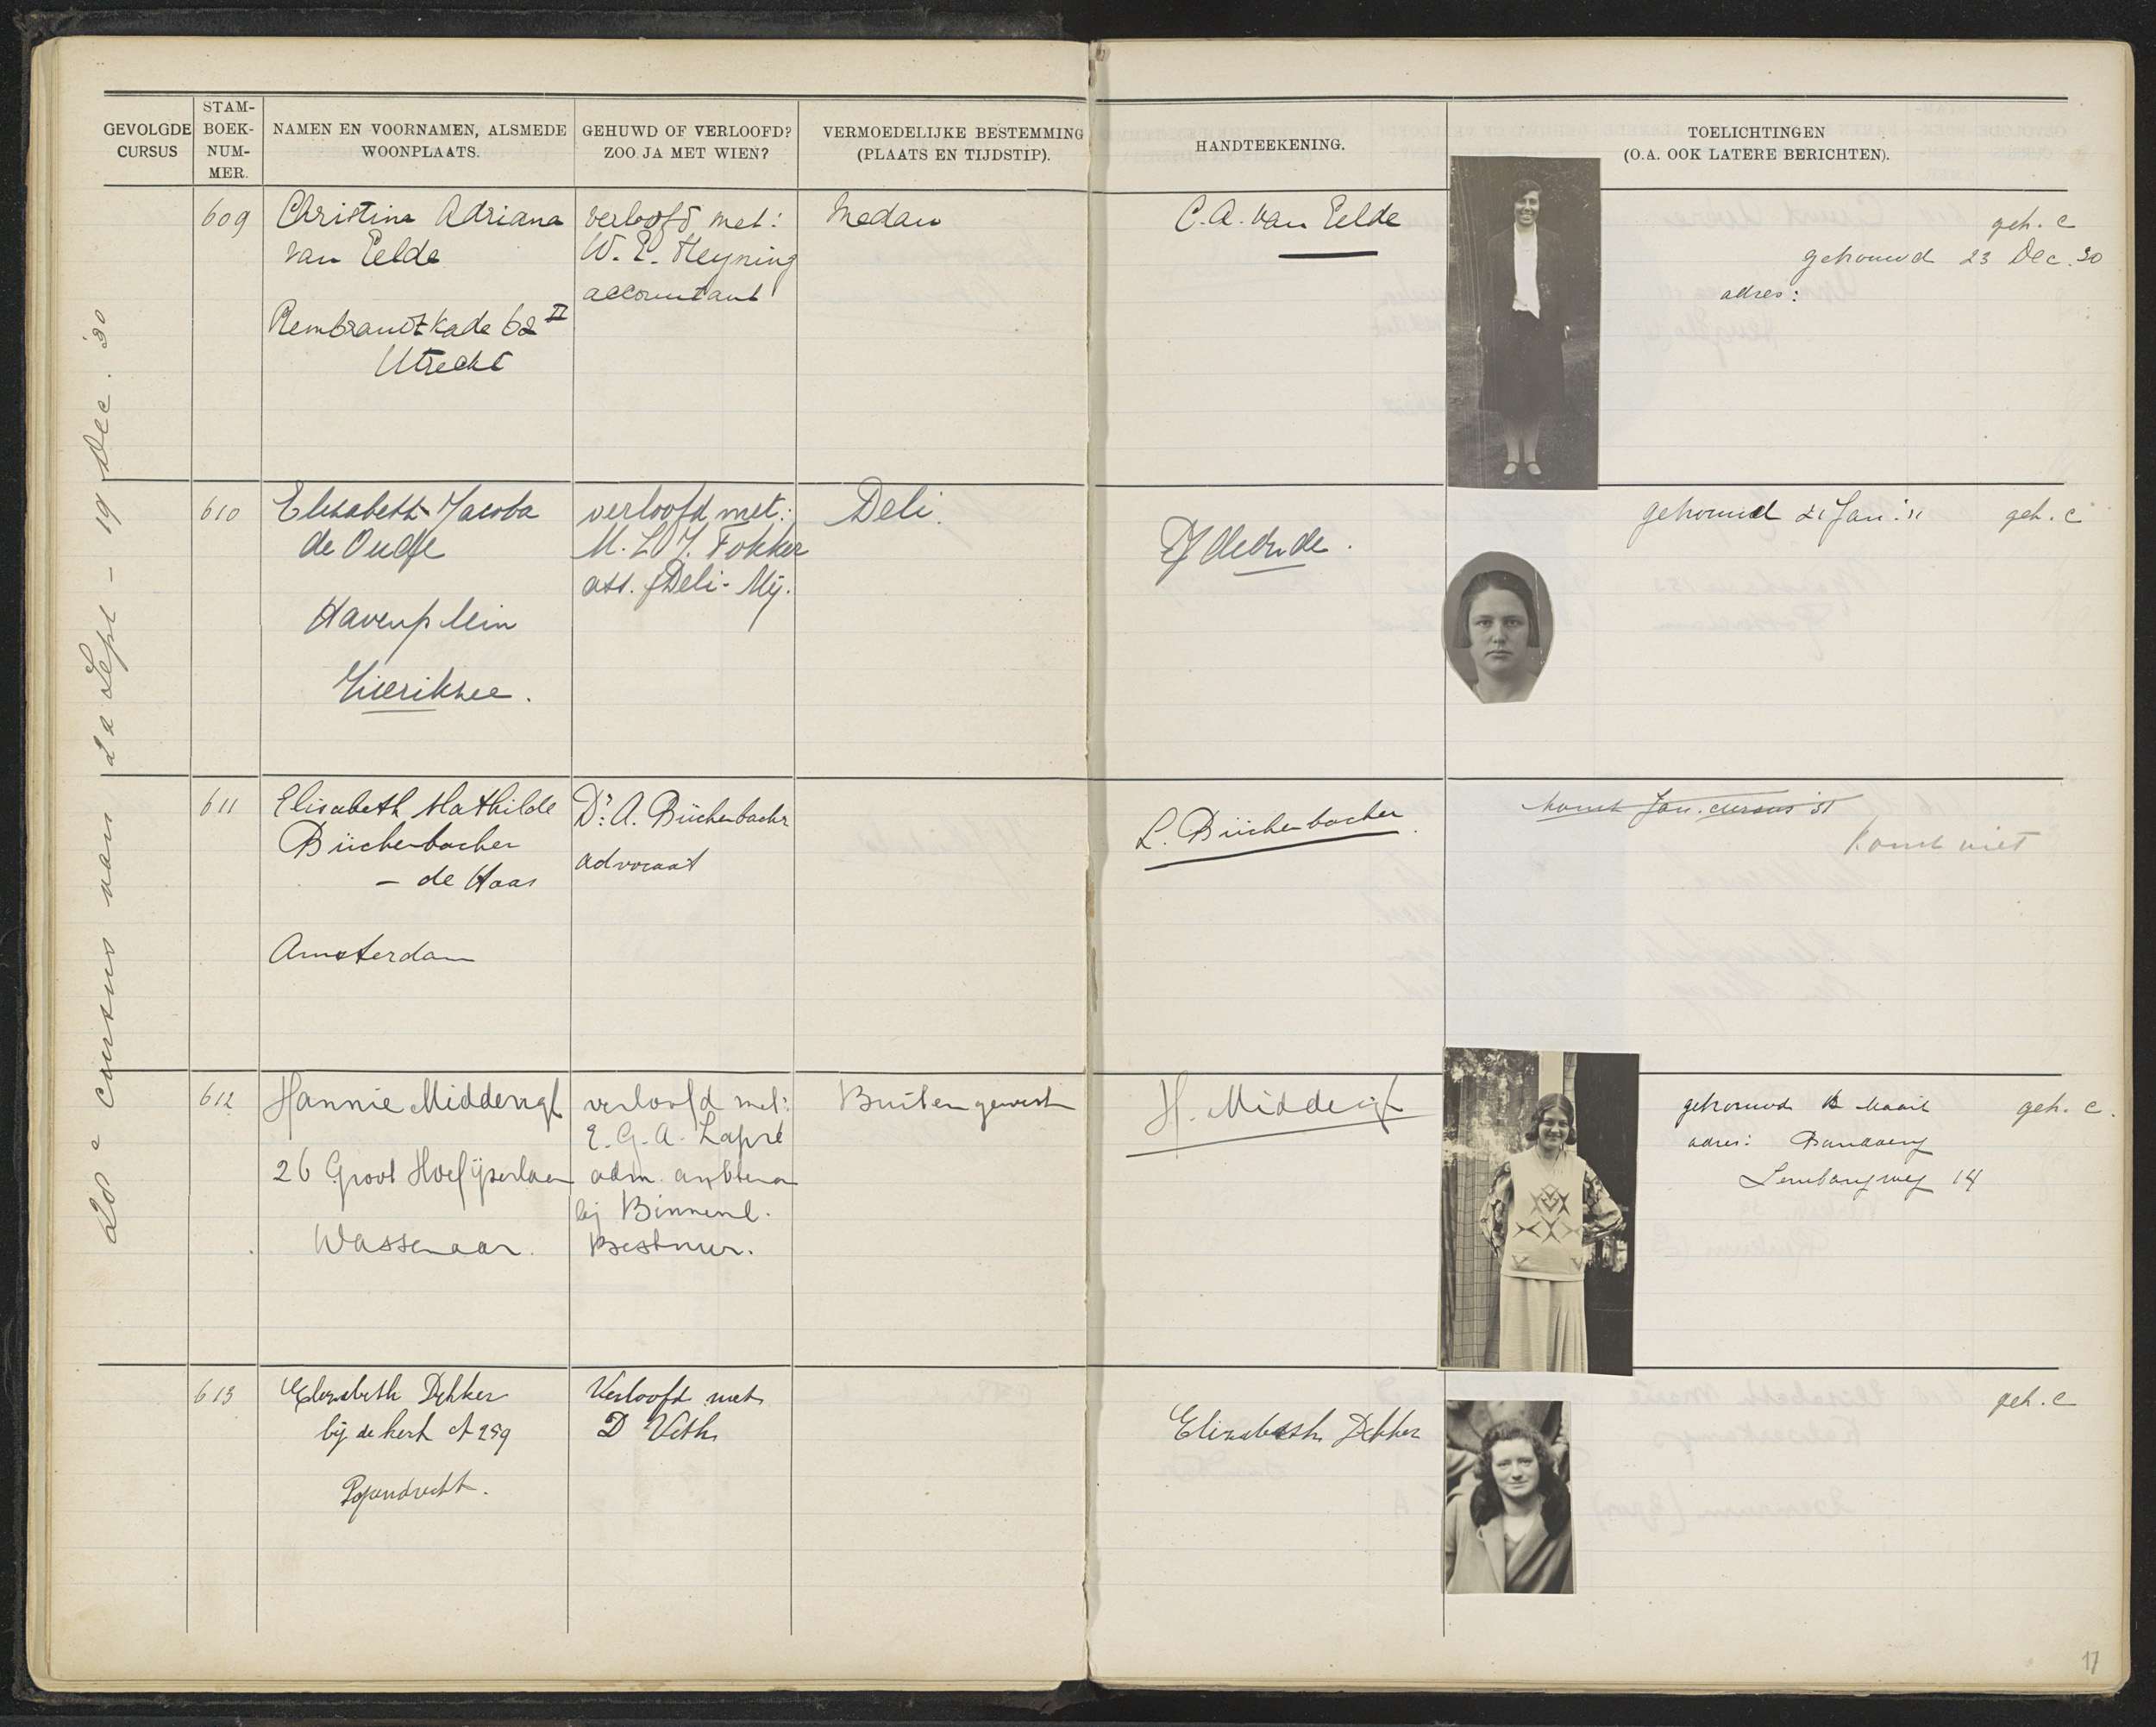 GEVOLGDE
CURSUS
STAM-
BOEK-
NUM-
MER.
NAMEN EN VOORNAMEN, ALSMEDE
WOONPLAATS.
GEHUWD OF VERLOOFD?
ZOO JA MET WIEN?
VERMOEDELIJKE BESTEMMING
(PLAATS EN TIJDSTIP).
HANDTEEKENING.
TOELICHTINGEN
(O.A. OOK LATERE BERICHTEN).
28e cursus van 22 Sept - 19 Dec. '30
609
Christina Adriana
van Eelde
Rembrandtkade 62 II
Utrecht
verloofd met:
W. E. Heyning
accountant
Medan
C. A. van Eelde
geh. c
getrouwd 23 Dec. 30
adres:
610
Elisabeth Jacoba
de Oude
Havenplein
Zierikzee.
verloofd met:
Fokker
ass. Deli-Mij.
Deli.
EJ de Oude.
getrouwd 21 Jan. '31
geh. c
611
Elisabeth Mathilde
Büchenbacher
- de Haas
Amsterdam
Dr. A. Büchenbacher
advocaat
L. Büchenbacher
komt Jan. cursus '31
komt niet
612
Hannie Middengt
26 Groot Hoefijzerlaan
Wassenaar.
verloofd met:
E. G. A. Lapré
adm. ambtenaar
bij Binnenl.
Bestuur.
Buitengewest
H. Middengt
getrouwd Maart
adres: Bandoeng
Lembangweg 14
geh. c.
613
Elizabeth Dekker
bij de kerk A 259
Papendrecht.
Verloofd met
D Veth
Elizabeth Dekker
geh. c
17